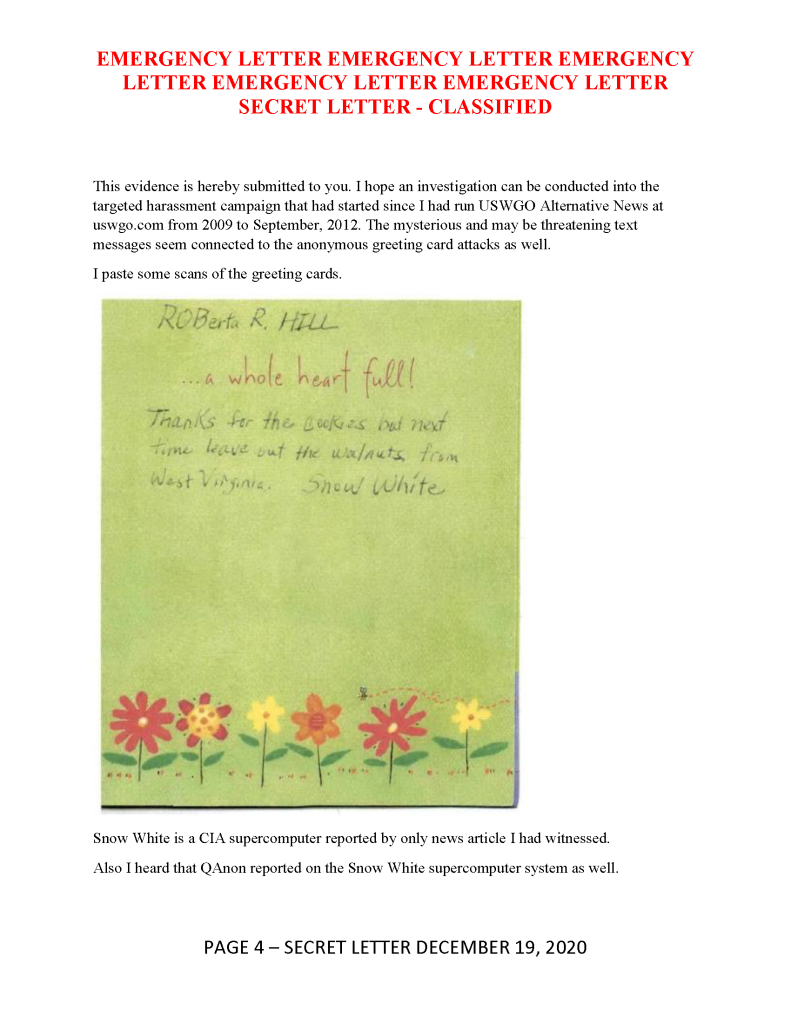 EMERGENCY LETTER EMERGENCY LETTER EMERGENCY
LETTER EMERGENCY LETTER EMERGENCY LETTER
SECRET LETTER - CLASSIFIED
This evidence is hereby submitted to you. I hope an investigation can be conducted into the
targeted harassment campaign that had started since I had run USWGO Alternative News at
uswgo.com from 2009 to September, 2012. The mysterious and may be threatening text
messages seem connected to the anonymous greeting card attacks as well.
I paste some scans of the greeting cards.
ROBerta R. HILL
...a whole heart full!
Thanks for the cookies but next
time leave out the walnuts from
West Virginia. Snow White
Snow White is a CIA supercomputer reported by only news article I had witnessed.
Also I heard that QAnon reported on the Snow White supercomputer system as well.
PAGE 4 – SECRET LETTER DECEMBER 19, 2020